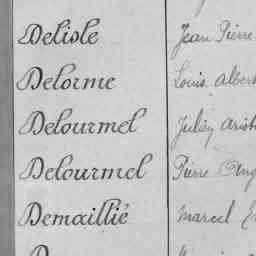 Delisle Jean Pierre
Delorme Louis Albert
Delourmel Julien
Delourmel Pierre
Demaillié Marcel